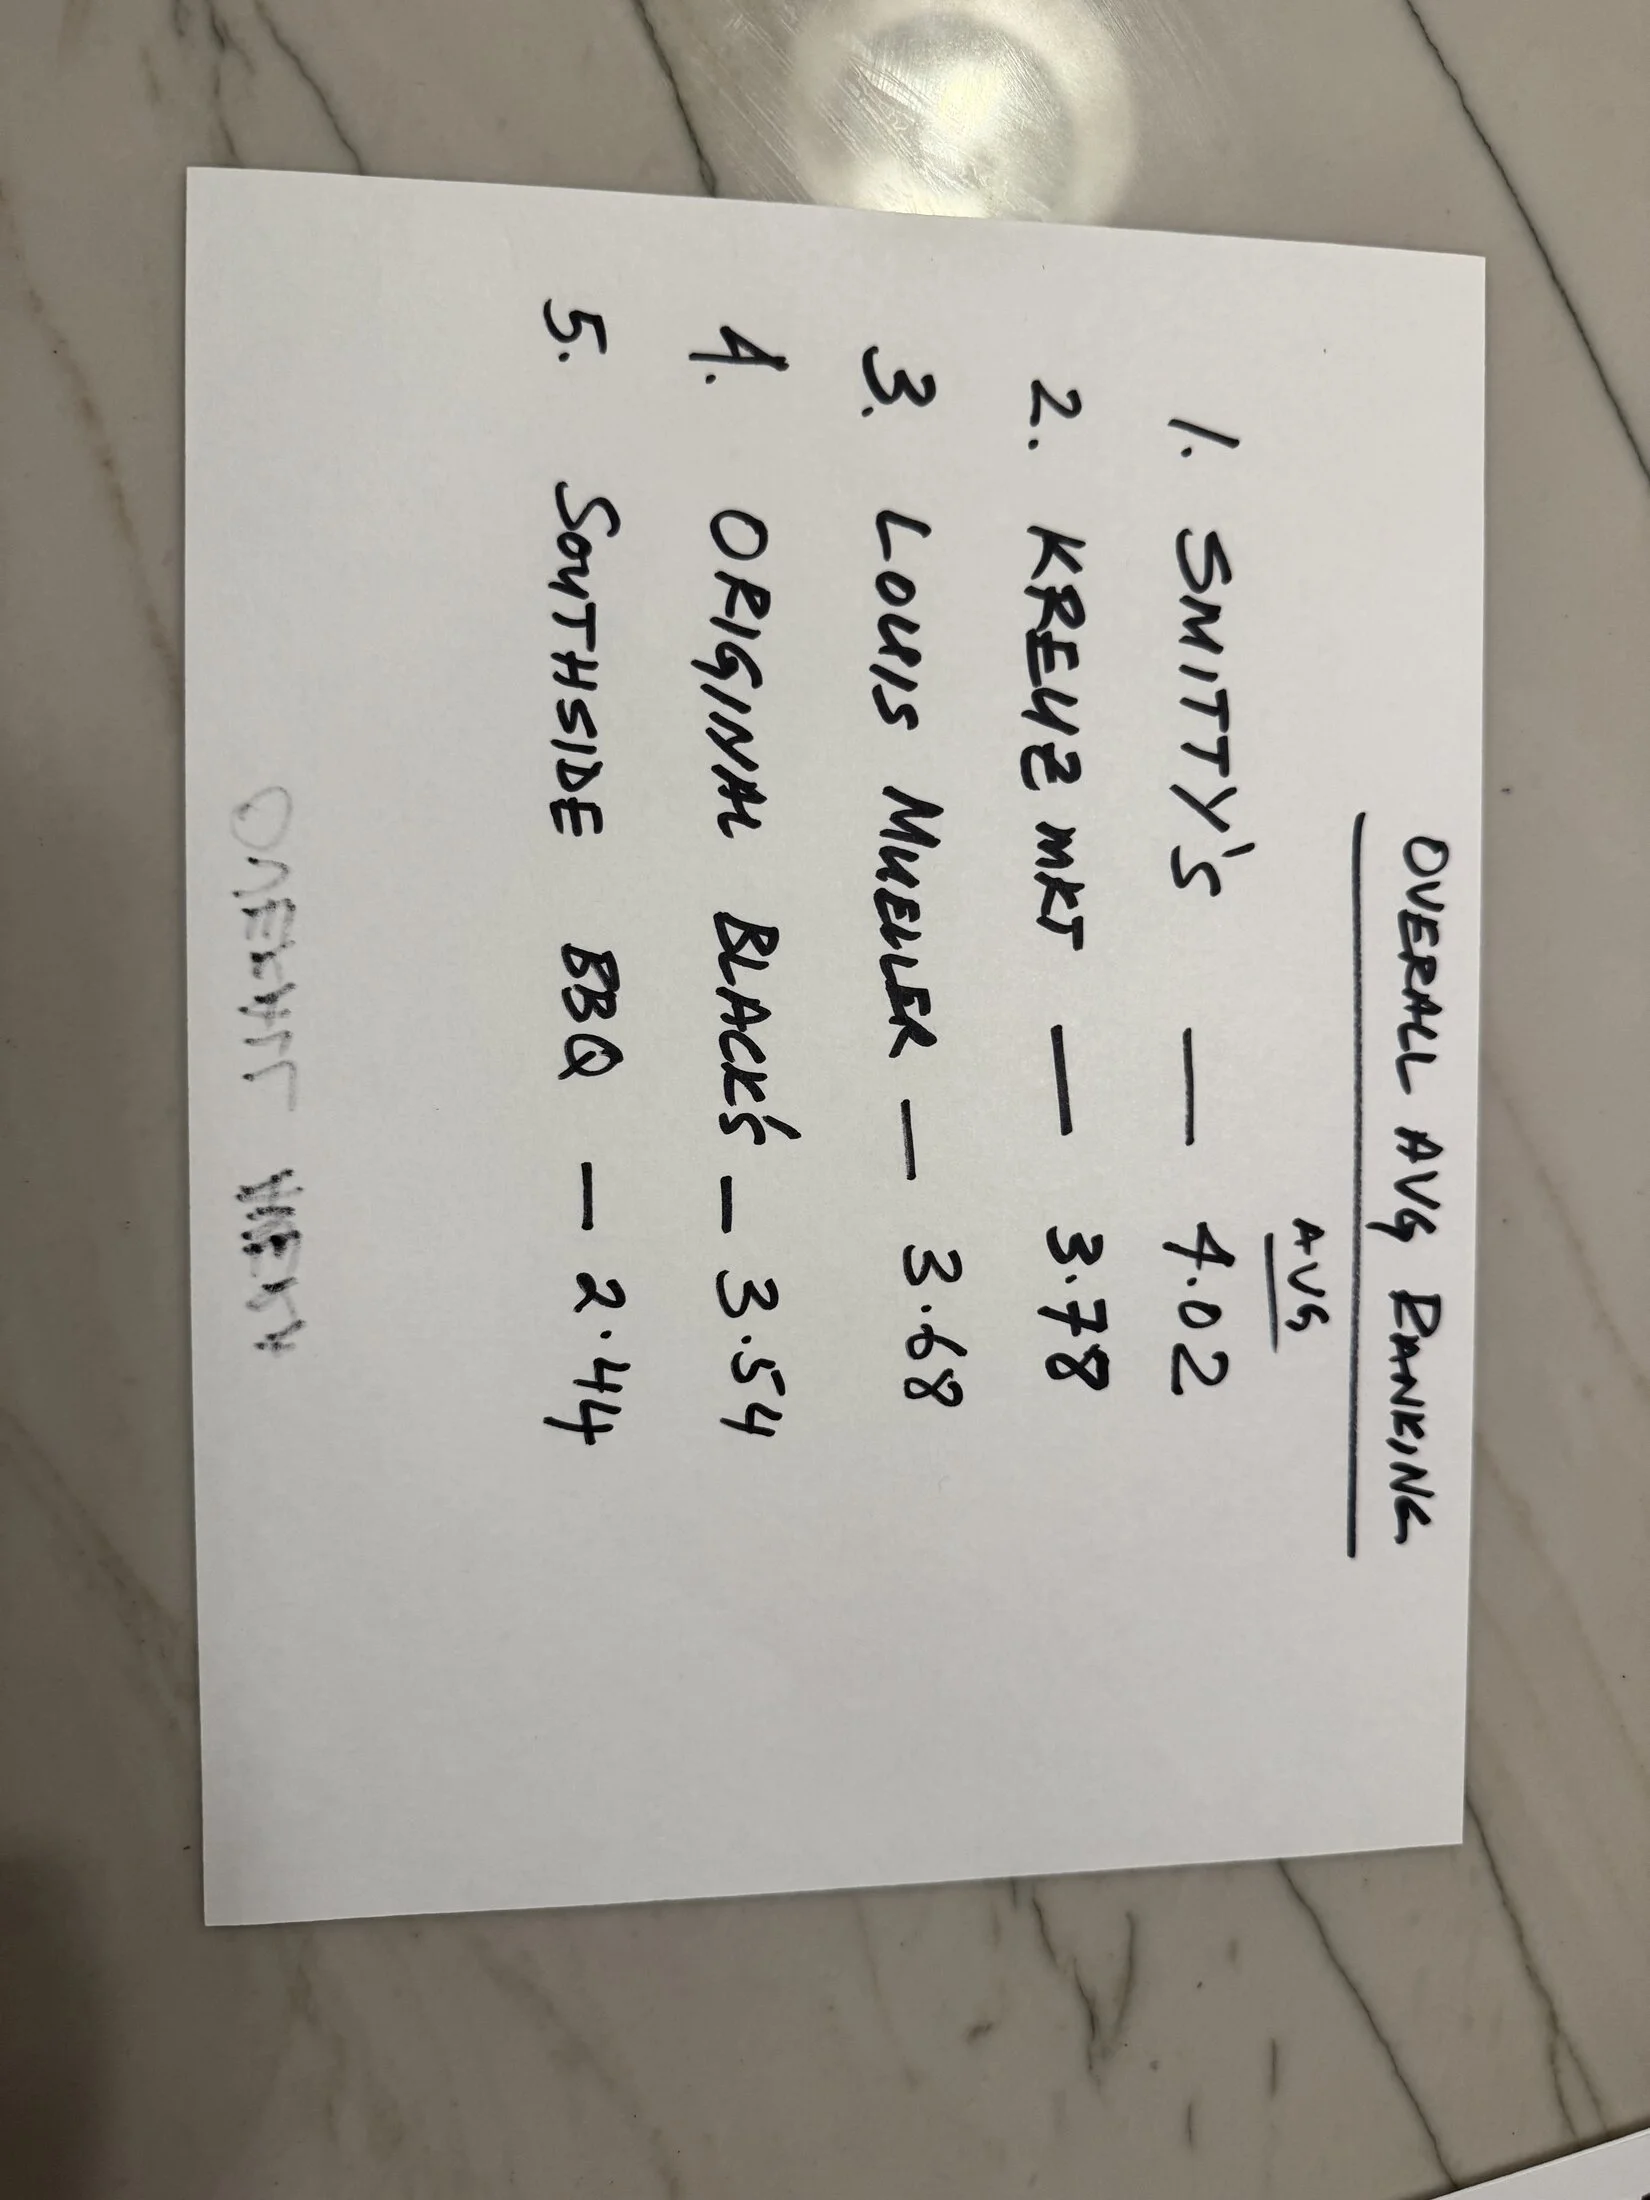 OVERALL AVG RANKING
AVG
1. SMITTY'S — 4.02
2. KREUZ MKT — 3.78
3. LOUIS MUELLER — 3.68
4. ORIGINAL BLACK'S — 3.54
5. SOUTHSIDE BBQ — 2.44